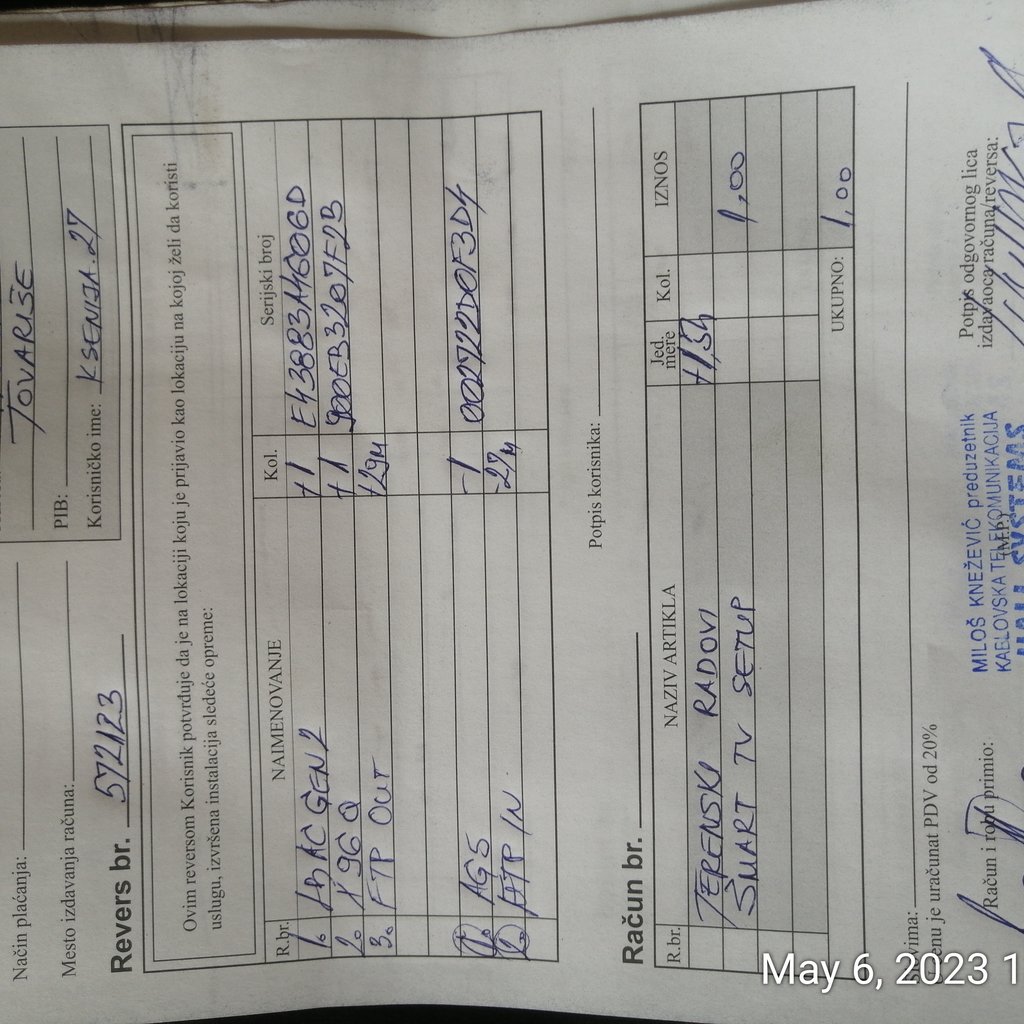 TOVARIŠE
PIB:
Korisničko ime: KSENIJA.27
Način plaćanja:
Mesto izdavanja računa:
Revers br. 572123
Ovim reversom Korisnik potvrđuje da je na lokaciji koju je prijavio kao lokaciju na kojoj želi da koristi
uslugu, izvršena instalacija sledeće opreme:
R.br. NAIMENOVANJE Kol. Serijski broj
1. AC GEN2 +1 E43883A1606D
2. X96Q +1 900EB3207F2B
3. FTP OUT +29m
1. AG5 -1 002722D0F3D4
2. FTP IN -27m
Potpis korisnika:
Račun br.
R.br. NAZIV ARTIKLA Jed. mere Kol. IZNOS
TERENSKI RADOVI +1,5h
SMART TV SETUP 1,00
UKUPNO: 1,00
enu je uračunat PDV od 20%
Račun i robu primio:
(M.P.)
MILOŠ KNEŽEVIĆ preduzetnik
KAELOVSKA TELEKOMUNIKACIJA
SYSTEMS
Potpis odgovornog lica
izdavaoca računa/reversa:
May 6, 2023 1